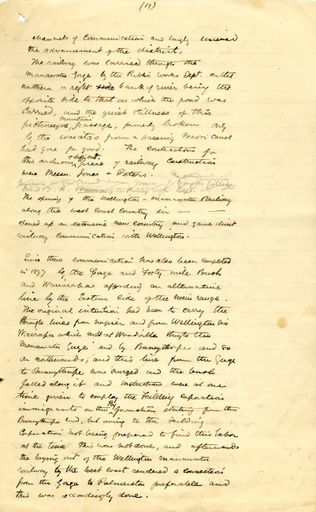 (11)
channels of Communication and largely assisted
the advancement of the district.
The railway was carried through the
Manawatu Gorge by the Public Works Dept. on the
northern or right side bank of river being the
opposite side to that on which the road was
carried, and the quiet stillness of this
mountain
picturesque passage, formerly broken only
by the waiatas from a passing Maori canoe
had gone for good. The contractors for
difficult
this arduous piece of railway construction
were Messrs. Jones & Peters.
The opening of the Wellington - Manawatu Railway
along the West Coast Country in — —
opened up an extensive new country and gave direct
railway communication with Wellington.
Since then communication has also been completed
in 1897 by the Gorge and Forty mile Bush
and Wairarapa affording an alternative
line by the Eastern side of the main range.
The original intention had been to carry the
through lines from Napier and from Wellington via
Wairarapa which met at Woodville through the
Manawatu Gorge and by Bunnythorpe and so
on northwards, and this line from the Gorge
to Bunnythorpe was surveyed and the bush
felled along it and instructions were at one
time given to employ the Feilding Corporation
immigrants on the formation starting from the
Bunnythorpe end, but owing to the Feilding
Corporation not being prepared to find this labor
at the time this was not done, and afterwards
the laying out of the Wellington Manawatu
railway by the West Coast rendered a connection
from the Gorge to Palmerston preferable and
this was accordingly done.